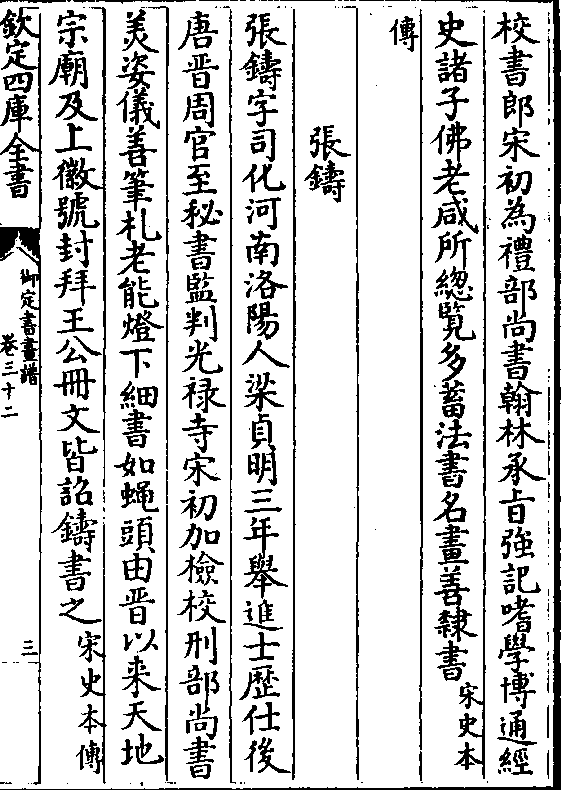 校書郎宋初為禮部尚書翰林承旨強記嗜學博通經
史諸子佛老咸所總覽多蓄法書名畫善隸書宋史本
傳
張鑄
張鑄字司化河南洛陽人梁貞明三年舉進士歴仕後
唐晋周官至秘書監判光禄寺宋初加檢校刑部尚書
美姿儀善筆札老能燈下細書如蝇頭由晋以来天地
宗廟及上徽號封拜王公冊文皆詔鑄書之宋史本傳
欽定四庫全書
御定書畫譜
卷三十二
三